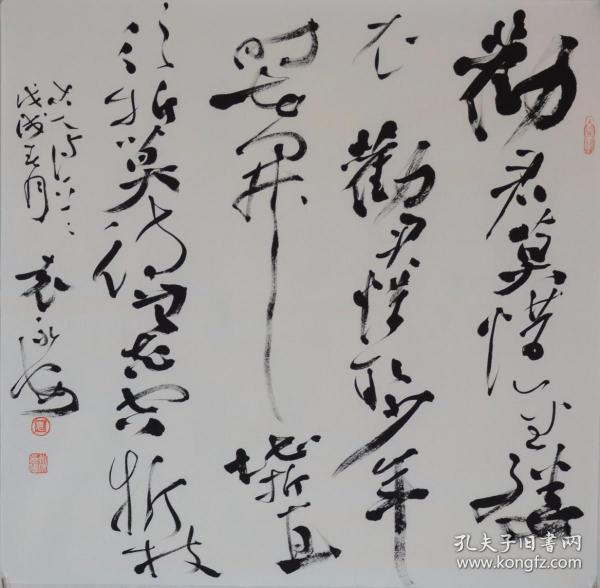 勸君莫惜金縷
衣 勸君惜取少年
時花開堪折直
須折莫待無花空折枝
戊戌春月
袁
孔夫子旧书网